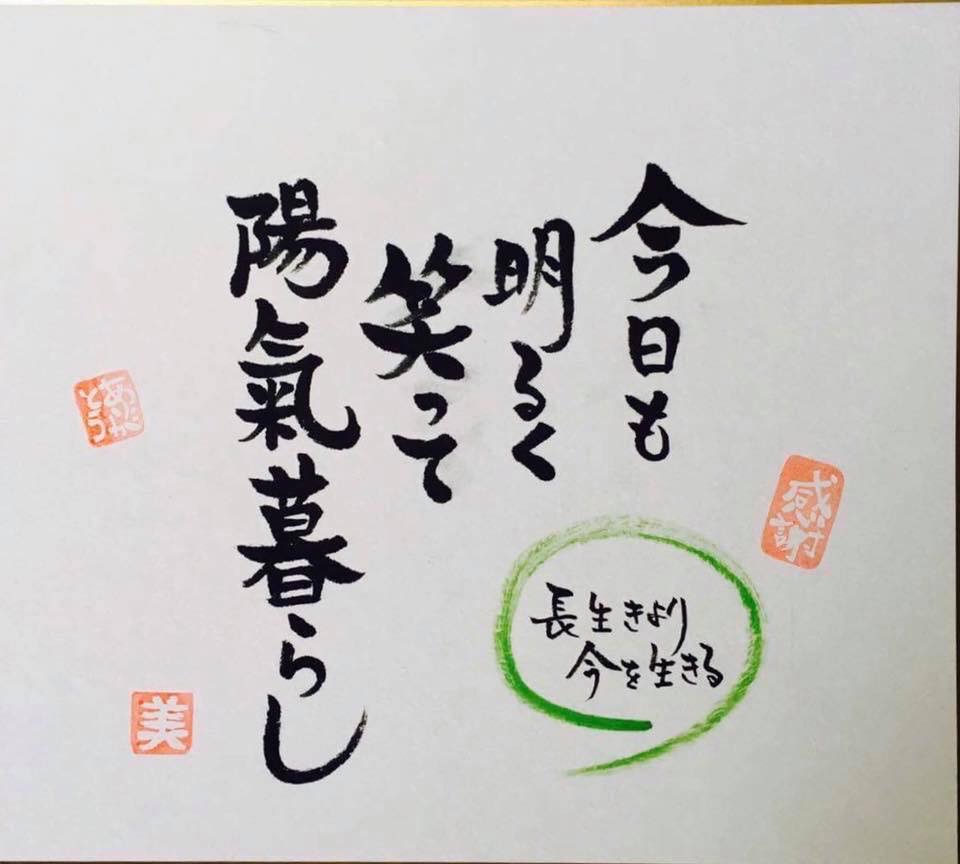 今日も
明るく
笑って
陽氣暮らし
長生きより
今を生きる
感謝
ありがとう
美